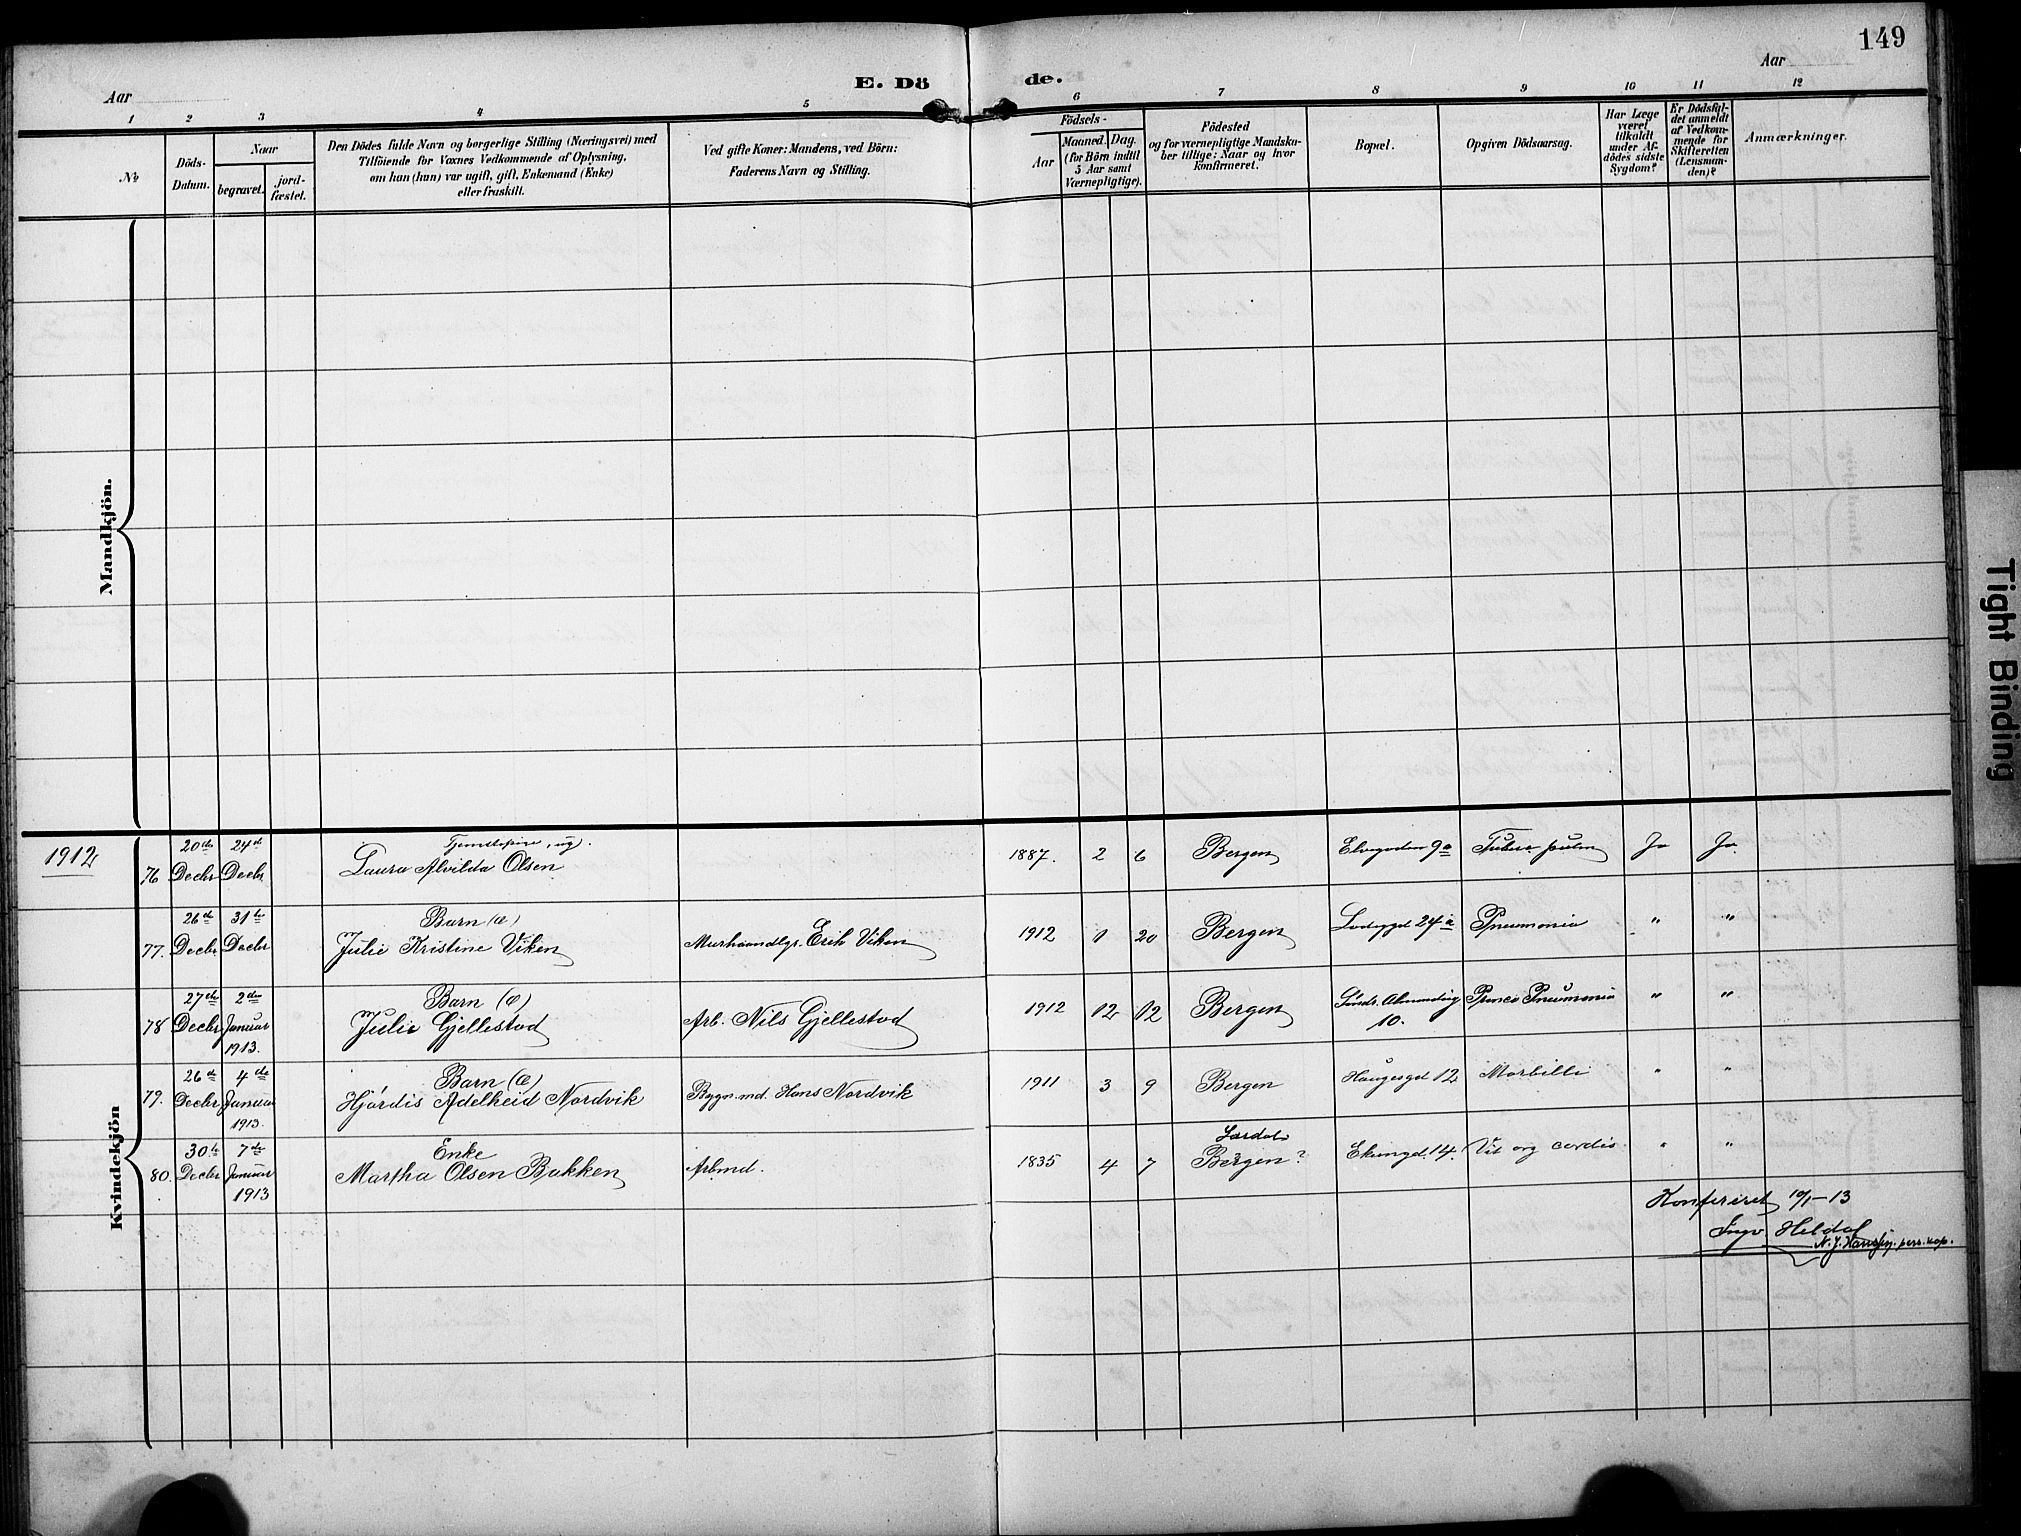 149
Aar
E. Dö
de.
Aar
1 2 3 4 5 6 7 8 9 10 11 12
No
Döds-
Datum.
Naar
begravet.
jord-
fæstet.
Den Dödes fulde Navn og borgerlige Stilling (Næringsvei) med
Tilföiende for Voxnes Vedkommende af Oplysning,
om han (hun) var ugift, gift, Enkemand (Enke)
eller fraskilt.
Ved gifte Koner: Mandens, ved Börn:
Faderens Navn og Stilling.
Födsels-
Aar
Maaned. Dag.
(for Börn indtil
5 Aar samt
Værnepligtige).
Födested
og for værnepligtige Mandska-
ber tillige: Naar og hvor
Konfirmeret.
Bopæl.
Opgiven Dödsaarsag.
Har Læge
været
tilkaldt
under Af-
dödes sidste
Sygdom?
Er Dödsfal-
det anmeldt
af Vedkom-
mende for
Skifteretten
(Lensman-
den)?
Anmærkninger.
Mandkjön.
Kvindekjön
1912
76 20de Decbr 24de Decbr
Tjenestepige, ug.
Laura Alvilda Olsen
1887. 2 6 Bergen Elvegaden 9a Ja Ja
77. 26de Decbr 31te Decbr
Barn (Æ)
Julie Kristine Viken
Murhaandlgr. Erik Viken
1912 1 20 Bergen 24a Pneumonia " "
78 27de Decbr 2den Januar 1913.
Barn (Æ)
Julie Gjellestad
Arb. Nils Gjellestad
1912 12 12 Bergen Söndr. Almending 10. Pneumonia " "
79. 26de Decbr 4de Januar 1913.
Barn (Æ)
Hjördis Adelheid Nordvik
Bygn.md. Hans Nordvik
1911 3 9 Bergen Haugesgd 12 Morbilli " "
80. 30te Decbr 7de Januar 1913
Enke
Martha Olsen Bakken
Arbmd.
1835 4 7 Lærdal Bergen? 14. Vit org cordis " "
Konfereret 10/1-13
Ingv. Heldal
pers. kap.
Tight Binding